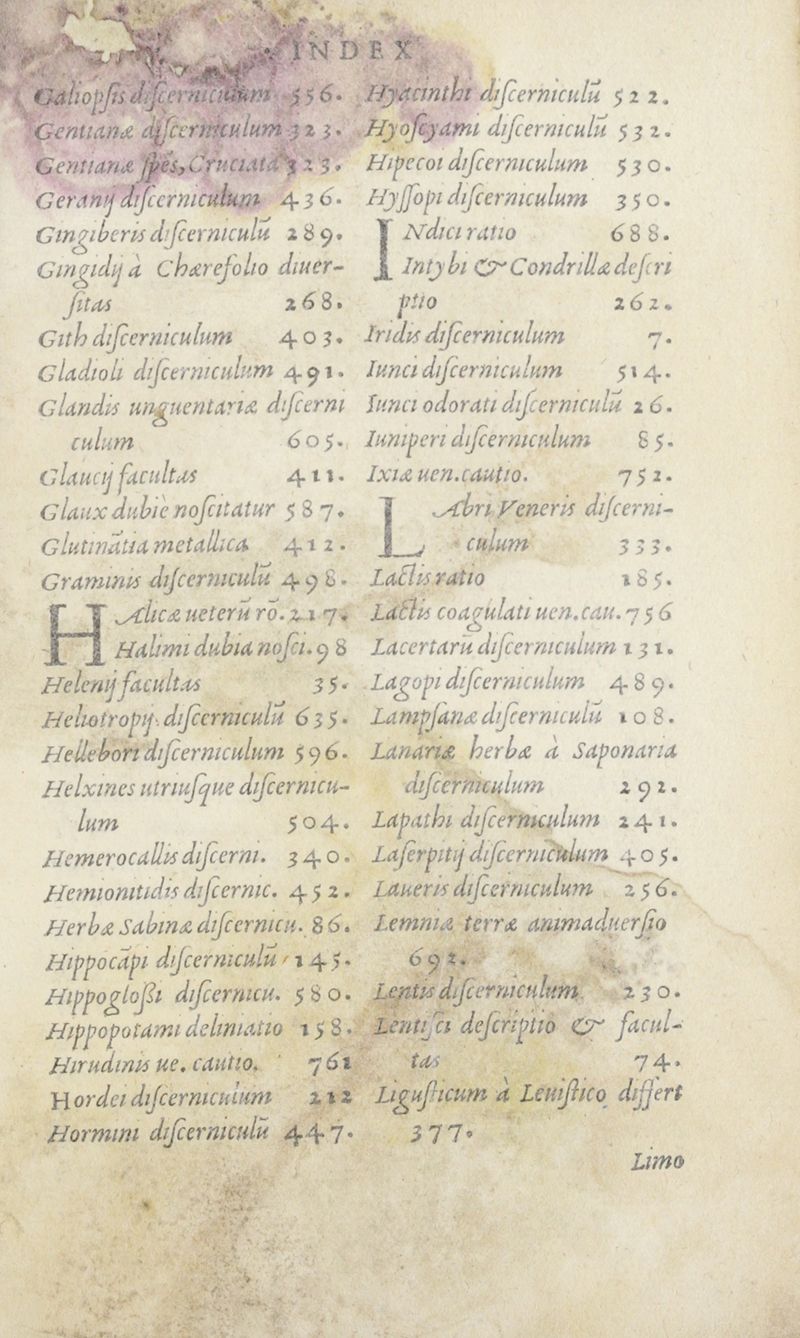 INDEX
Galiopſis diſcerniculum 556.
Gentianæ diſcerniculum 323.
Gentianæ ſpēs, Cruciata 323.
Geranij diſcerniculum 436.
Gingiberis diſcerniculū 289.
Gingidij à Chærefolio diuer-
ſitas 268.
Gith diſcerniculum 403.
Gladioli diſcerniculum 491.
Glandis unguentariæ diſcerni
culum 605.
Glaucij facultas 411.
Glaux dubiè noſcitatur 587.
Glutinātia metallica 412.
Graminis diſcerniculū 498.
HAlicæ ueterū rō. 217.
Halimi dubia noſci. 98
Helenij facultas 35.
Heliotropij diſcerniculū 635.
Hellebori diſcerniculum 596.
Helxines utriuſque diſcernicu-
lum 504.
Hemerocallis diſcerni. 340.
Hemionitidis diſcernic. 452.
Herbæ Sabinæ diſcernicu. 86.
Hippocāpi diſcerniculū 145.
Hippogloſſi diſcernicu. 580.
Hippopotami deliniatio 158.
Hirudinis ue. cautio. 761
Hordei diſcerniculum 212
Hormini diſcerniculū 447.
Hyacinthi diſcerniculū 522.
Hyoſcyami diſcerniculū 532.
Hipecoi diſcerniculum 530.
Hyſſopi diſcerniculum 350.
INdici ratio 688.
Intybi & Condrillæ deſcri
ptio 262.
Iridis diſcerniculum 7.
Iunci diſcerniculum 514.
Iunci odorati diſcerniculū 26.
Iuniperi diſcerniculum 85.
Ixiæ uen. cautio. 752.
LAbri Veneris diſcerni-
culum 333.
Lactis ratio 185.
Lactis coagulati uen. cau. 756
Lacertarū diſcerniculum 131.
Lagopi diſcerniculum 489.
Lampſanæ diſcerniculū 108.
Lanariæ herbæ à Saponaria
diſcerniculum 292.
Lapathi diſcerniculum 241.
Laſerpitij diſcerniculum 405.
Laueris diſcerniculum 256.
Lemniæ terræ animaduerſio
692.
Lentis diſcerniculum 230.
Lentiſci deſcriptio & facul-
tas 74.
Liguſticum à Leuiſtico differt
377.
Limo